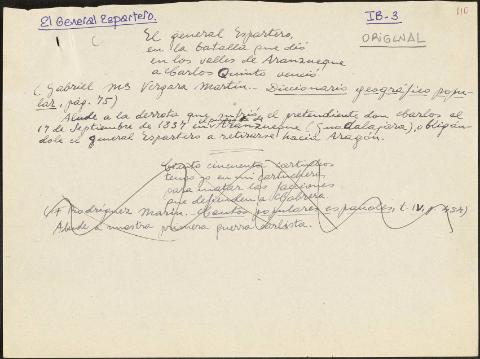 El General Espartero.
IB-3
116
1 (
ORIGINAL
El general Espartero,
en la batalla que dió
en los valles de Aranzueque
a Carlos Quinto venció
(Gabriel Mª Vergara Martín.- Diccionario geográfico popu-
lar, pág. 75)
Alude a la derrota que sufrió el pretendiente don Carlos el
17 de Septiembre de 1837 en Aranzueque (Guadalajara), obligán-
dole el general Espartero a retirarse hacia Aragón.
Ciento cincuenta cartuchos
tengo yo en mi cartuchera
para matar las facciones
que defienden a Cabrera.
(F Rodríguez Marín.- Cantos populares españoles, t. IV, p. 434)
Alude a nuestra primera guerra carlista.